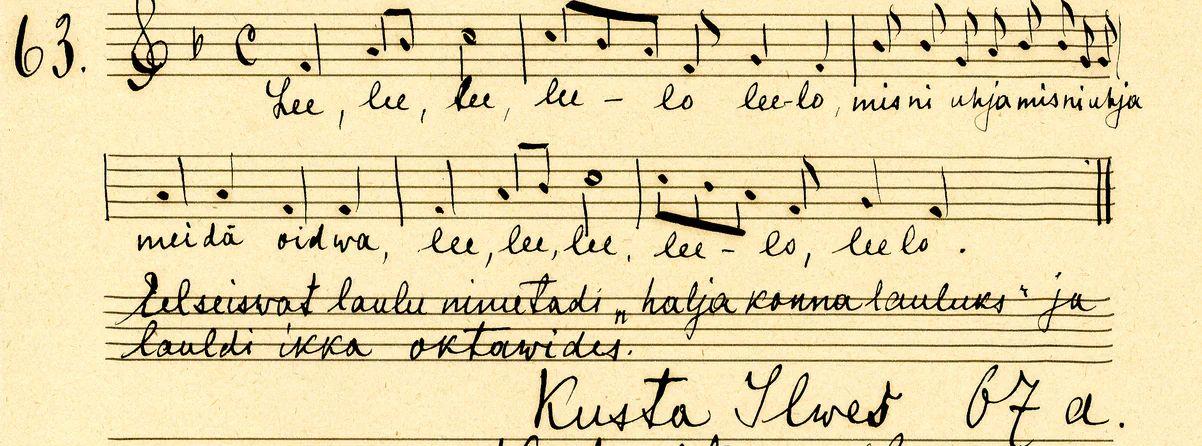 63.
Lee, lee, lee, lee - lo lee-lo, misni uhja misni uhja
meidä oidwa, lee, lee, lee, lee - lo, leelo.
Eelseiswat laulu nimetadi „halja konna lauluks" ja
lauldi ikka oktawides.
Kusta Ilwes 67 a.